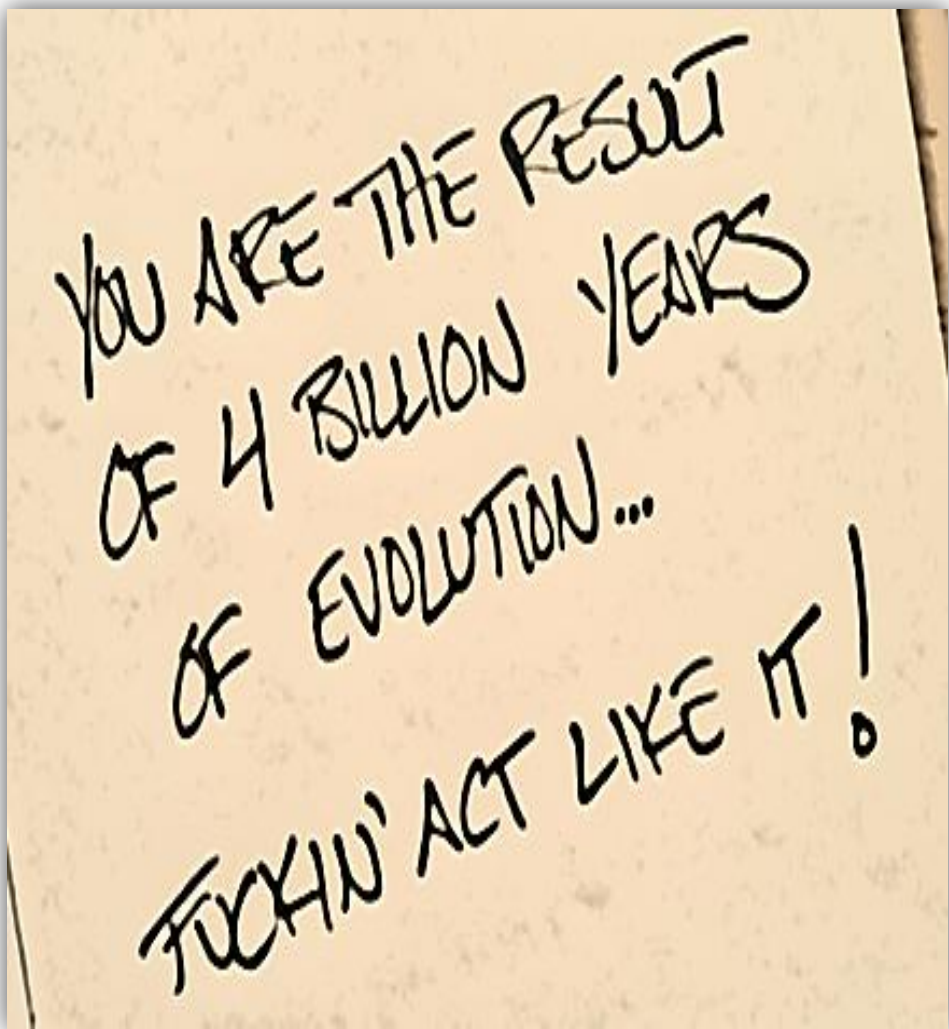 YOU ARE THE RESULT
OF 4 BILLION YEARS
OF EVOLUTION...
FUCKIN' ACT LIKE IT!